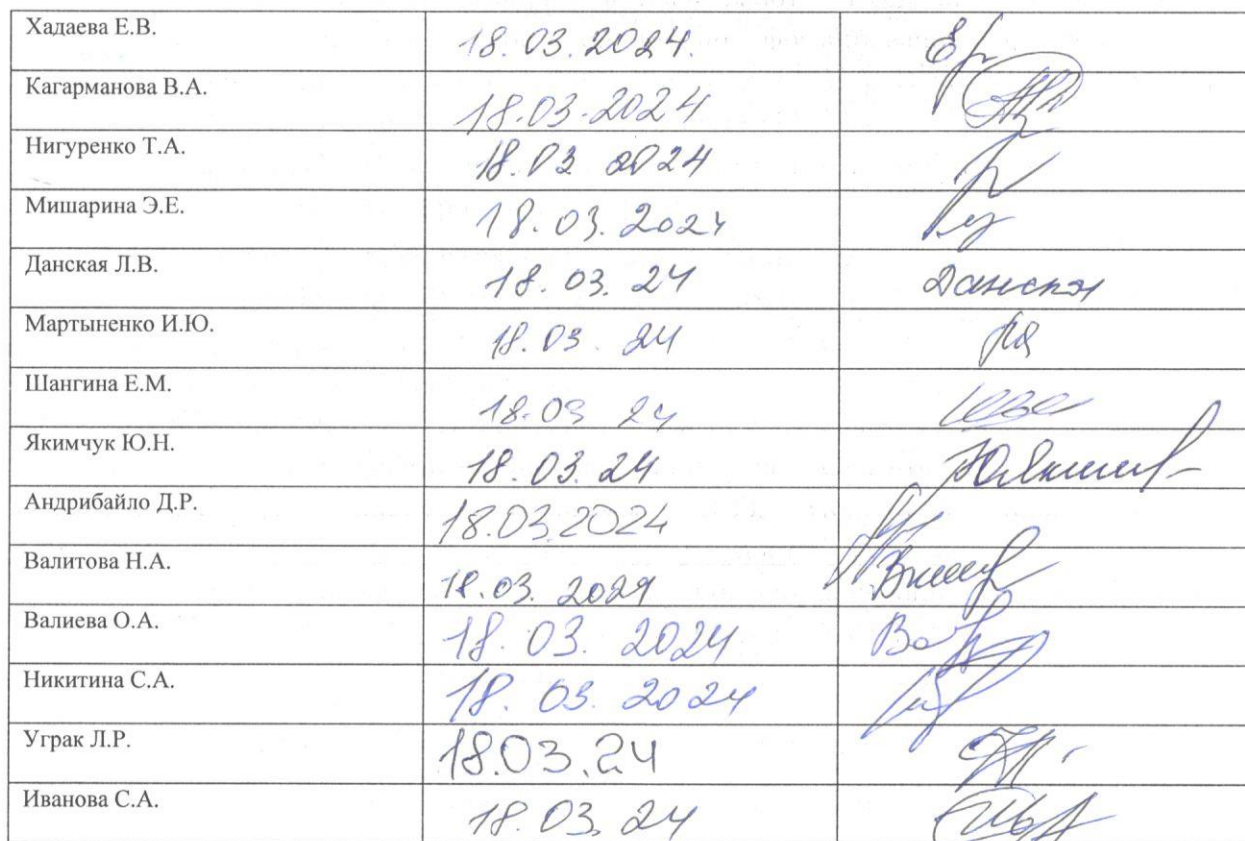 Хадаева Е.В. 18.03.2024.
Кагарманова В.А. 18.03.2024
Нигуренко Т.А. 18.03 2024
Мишарина Э.Е. 18.03.2024
Данская Л.В. 18.03.24 Данская
Мартыненко И.Ю. 18.03.24
Шангина Е.М. 18.03 24
Якимчук Ю.Н. 18.03.24
Андрибайло Д.Р. 18.03.2024
Валитова Н.А. 18.03.2024
Валиева О.А. 18.03.2024
Никитина С.А. 18.03.2024
Уграк Л.Р. 18.03.24
Иванова С.А. 18.03.24